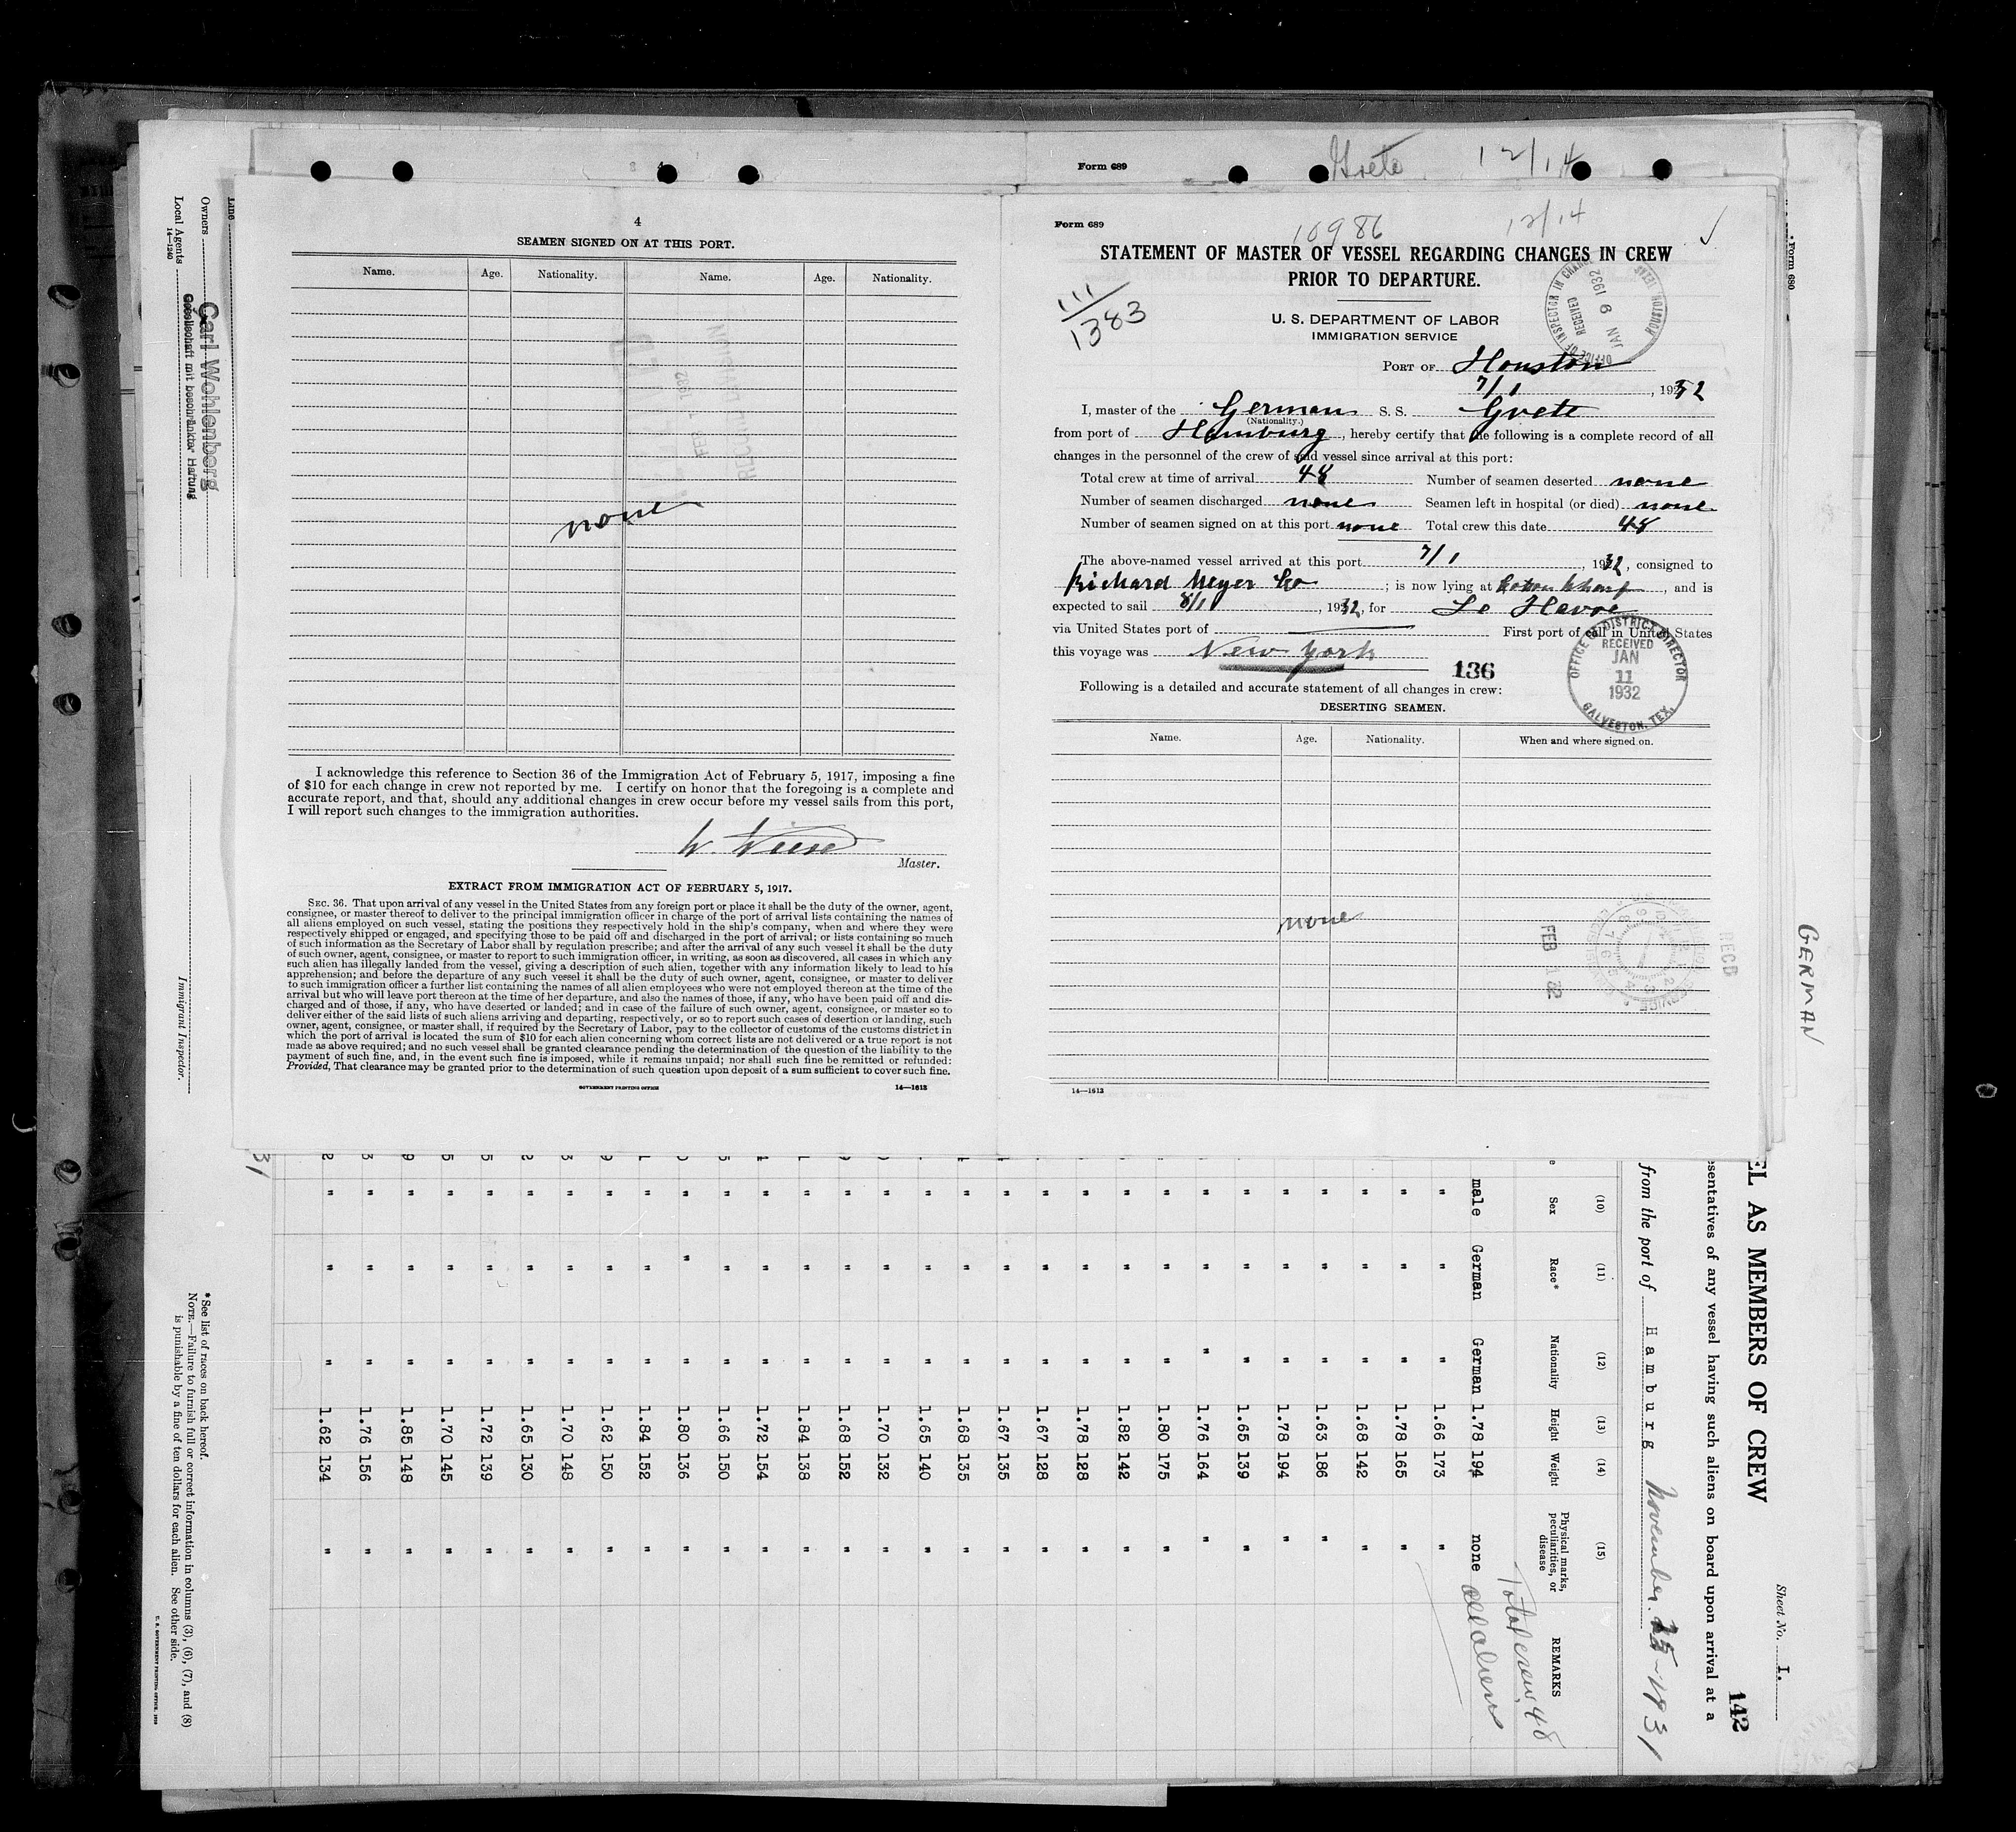 Form 689
Grete 12/14
4
SEAMEN SIGNED ON AT THIS PORT.
Name. Age. Nationality. Name. Age. Nationality.
none
I acknowledge this reference to Section 36 of the Immigration Act of February 5, 1917, imposing a fine
of $10 for each change in crew not reported by me. I certify on honor that the foregoing is a complete and
accurate report, and that, should any additional changes in crew occur before my vessel sails from this port,
I will report such changes to the immigration authorities.
Master.
EXTRACT FROM IMMIGRATION ACT OF FEBRUARY 5, 1917.
SEC. 36. That upon arrival of any vessel in the United States from any foreign port or place it shall be the duty of the owner, agent,
consignee, or master thereof to deliver to the principal immigration officer in charge of the port of arrival lists containing the names of
all aliens employed on such vessel, stating the positions they respectively hold in the ship's company, when and where they were
respectively shipped or engaged, and specifying those to be paid off and discharged in the port of arrival; or lists containing so much
of such information as the Secretary of Labor shall by regulation prescribe; and after the arrival of any such vessel it shall be the duty
of such owner, agent, consignee, or master to report to such immigration officer, in writing, as soon as discovered, all cases in which any
such alien has illegally landed from the vessel, giving a description of such alien, together with any information likely to lead to his
apprehension; and before the departure of any such vessel it shall be the duty of such owner, agent, consignee, or master to deliver
to such immigration officer a further list containing the names of all alien employees who were not employed thereon at the time of the
arrival but who will leave port thereon at the time of her departure, and also the names of those, if any, who have been paid off and dis-
charged and of those, if any, who have deserted or landed; and in case of the failure of such owner, agent, consignee, or master so to
deliver either of the said lists of such aliens arriving and departing, respectively, or so to report such cases of desertion or landing, such
owner, agent, consignee, or master shall, if required by the Secretary of Labor, pay to the collector of customs of the customs district in
which the port of arrival is located the sum of $10 for each alien concerning whom correct lists are not delivered or a true report is not
made as above required; and no such vessel shall be granted clearance pending the determination of the question of the liability to the
payment of such fine, and, in the event such fine is imposed, while it remains unpaid; nor shall such fine be remitted or refunded:
Provided, That clearance may be granted prior to the determination of such question upon deposit of a sum sufficient to cover such fine.
GOVERNMENT PRINTING OFFICE 14—1613
Form 689
10986 12/14
STATEMENT OF MASTER OF VESSEL REGARDING CHANGES IN CREW
PRIOR TO DEPARTURE.
111/1383
U. S. DEPARTMENT OF LABOR
IMMIGRATION SERVICE
OFFICE OF INSPECTOR IN CHARGE
RECEIVED
JAN 9 1932
HOUSTON, TEXAS
PORT OF Houston
7/1, 1932
I, master of the German S. S. Grete
(Nationality.)
from port of Hamburg, hereby certify that the following is a complete record of all
changes in the personnel of the crew of said vessel since arrival at this port:
Total crew at time of arrival 48 Number of seamen deserted none
Number of seamen discharged none Seamen left in hospital (or died) none
Number of seamen signed on at this port none Total crew this date 48
The above-named vessel arrived at this port 7/1, 1932, consigned to
Richard Meyer Co; is now lying at Coton Wharf, and is
expected to sail 8/1, 1932, for Le Havre
via United States port of First port of call in United States
this voyage was New York
136
OFFICE OF DISTRICT DIRECTOR
RECEIVED
JAN
11
1932
GALVESTON, TEX.
Following is a detailed and accurate statement of all changes in crew:
DESERTING SEAMEN.
Name. Age. Nationality. When and where signed on.
none
FEB 1 32
RECD
14—1613
Form 680
GERMAN
Line
Owners Carl Wohlenberg
Gesellschaft mit beschränkter Haftung
Local Agents
14—1240
Immigrant Inspector.
*See list of races on back hereof.
NOTE.—Failure to furnish full or correct information in columns (3), (6), (7), and (8)
is punishable by a fine of ten dollars for each alien. See other side.
Sheet No. 1.
142
EL AS MEMBERS OF CREW
sentatives of any vessel having such aliens on board upon arrival at a
from the port of Hamburg November 25-1931
(10) (11) (12) (13) (14) (15)
Sex Race* Nationality Height Weight Physical marks, peculiarities, or disease REMARKS
Total crew 48
male German German 1.78 194 none All aliens
" " " 1.66 173 "
" " " 1.78 165 "
" " " 1.68 142 "
" " " 1.63 186 "
" " " 1.78 194 "
" " " 1.65 139 "
" " " 1.76 164 "
" " " 1.80 175 "
" " " 1.82 142 "
" " " 1.78 128 "
" " " 1.67 128 "
" " " 1.67 135 "
" " " 1.68 135 "
" " " 1.65 140 "
" " " 1.70 132 "
" " " 1.68 152 "
" " " 1.84 138 "
" " " 1.72 154 "
" " " 1.66 150 "
" " " 1.80 136 "
" " " 1.84 152 "
" " " 1.62 150 "
" " " 1.70 148 "
" " " 1.65 130 "
" " " 1.72 139 "
" " " 1.70 145 "
" " " 1.85 148 "
" " " 1.76 166 "
" " " 1.62 134 "